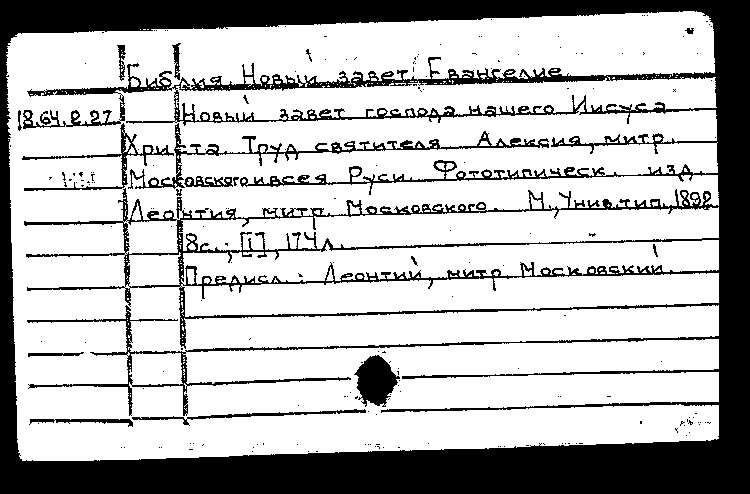 Библия. Новый завет. Евангелие
18.64.2.27 Новый завет господа нашего Иисуса
Христа. Труд святителя Алексия, митр.
Московского и всея Руси. Фототипическ. изд.
Леонтия, митр. Московского. М., Унив. тип., 1892
8с.; [1], 174 л.
Предисл.: Леонтий, митр. Московский.